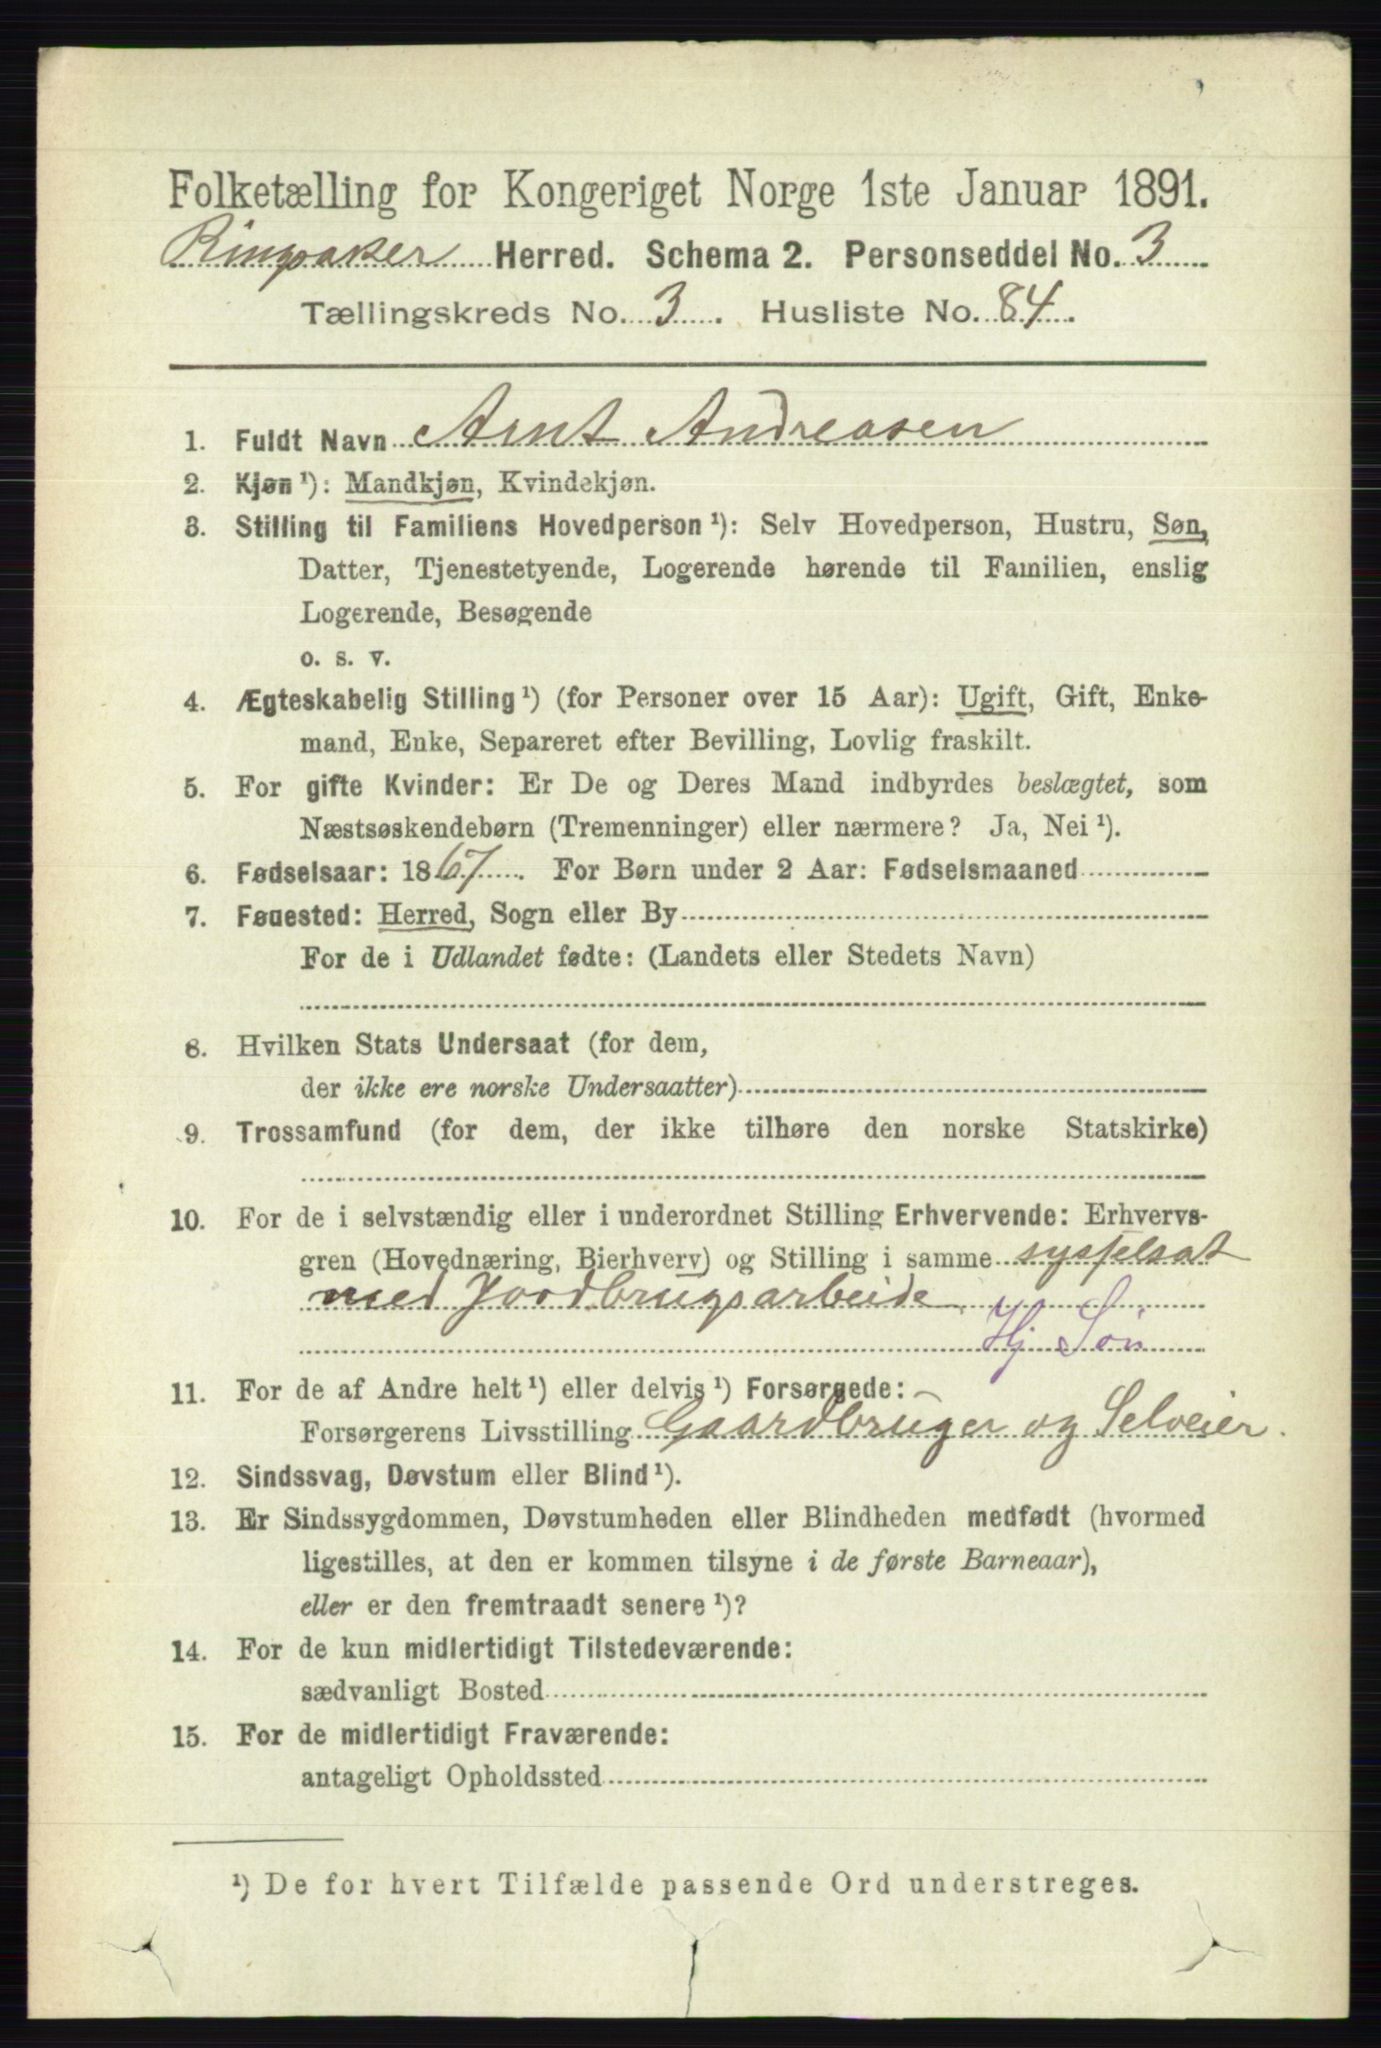 Folketælling for Kongeriget Norge 1ste Januar 1891.
Ringsaker Herred. Schema 2. Personseddel No. 3
Tællingskreds No. 3. Husliste No. 84.
1. Fuldt Navn Arnt Andreasen
2. Kjøn ¹): Mandkjøn, Kvindekjøn.
3. Stilling til Familiens Hovedperson ¹): Selv Hovedperson, Hustru, Søn,
Datter, Tjenestetyende, Logerende hørende til Familien, enslig
Logerende, Besøgende
o. s. v.
4. Ægteskabelig Stilling ¹) (for Personer over 15 Aar): Ugift, Gift, Enke-
mand, Enke, Separeret efter Bevilling, Lovlig fraskilt.
5. For gifte Kvinder: Er De og Deres Mand indbyrdes beslægtet, som
Næstsøskendebørn (Tremenninger) eller nærmere? Ja, Nei ¹).
6. Fødselsaar: 1867. For Børn under 2 Aar: Fødselsmaaned
7. Føuested: Herred, Sogn eller By
For de i Udlandet fødte: (Landets eller Stedets Navn)
8. Hvilken Stats Undersaat (for dem,
der ikke ere norske Undersaatter)
9. Trossamfund (for dem, der ikke tilhøre den norske Statskirke)
10. For de i selvstændig eller i underordnet Stilling Erhvervende: Erhvervs-
gren (Hovednæring, Bierhverv) og Stilling i samme sysselsat
med Jordbrugsarbeide
Hj Søn
11. For de af Andre helt ¹) eller delvis ¹) Forsørgede:
Forsørgerens Livsstilling Gaardbruger og Selveier.
12. Sindssvag, Døvstum eller Blind ¹).
13. Er Sindssygdommen, Døvstumheden eller Blindheden medfødt (hvormed
ligestilles, at den er kommen tilsyne i de første Barneaar),
eller er den fremtraadt senere ¹)?
14. For de kun midlertidigt Tilstedeværende:
sædvanligt Bosted
15. For de midlertidigt Fraværende:
antageligt Opholdssted
¹) De for hvert Tilfælde passende Ord understreges.